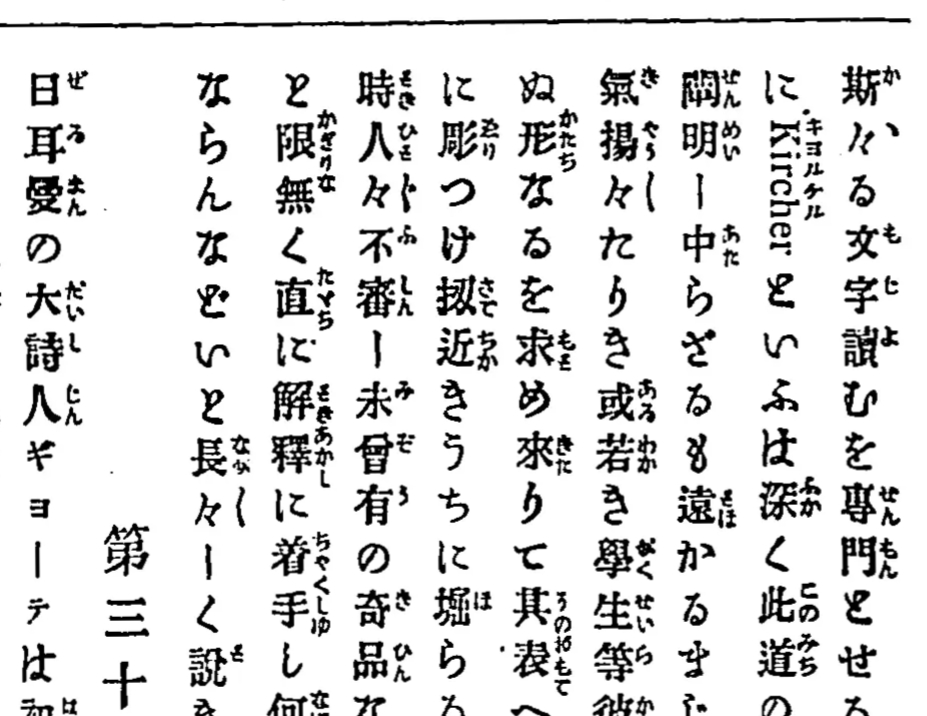 斯々る文字讀むを專門とせる
にKircherといふは深く此道の
闡明ー中らざるも遠かるまじ
氣揚々たりき或若き學生等彼
ぬ形なるを求め來りて其表へ
に彫つけ扨近きうちに堀らる
時人々不審ー未曾有の奇品な
と限無く直に解釋に着手し何
ならんなどいと長々ーく說き
第三十
日耳曼の大詩人ギヨーテは